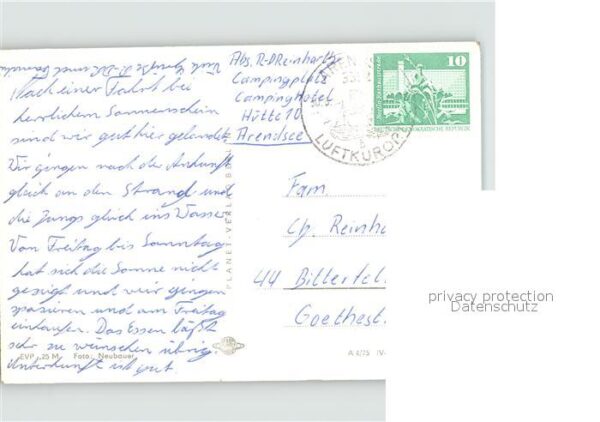 Viele Grüße
Abs. R-D Reinhardt
Campingplatz
Campinghotel
Hütte 10
Arendsee
Nach einer Fahrt bei
herrlichem Sonnenschein
sind wir gut hier gelandet.
Wir gingen nach der Ankunft
gleich an den Strand und
die Jungs gleich ins Wasser.
Von Freitag bis Sonntag
hat sich die Sonne nicht
gezeigt und wir gingen
spazieren und am Freitag
einkaufen. Das Essen läßt
sehr zu wünschen übrig
Unterkunft ist gut.
10
DEUTSCHE DEMOKRATISCHE REPUBLIK
LUFTKURORT
Fam.
Ch. Reinha
44 Bitterfel
Goethest.
PLANET-VERLAG B
EVP -,25 M Foto: Neubauer
A 4/75 IV-
privacy protection
Datenschutz